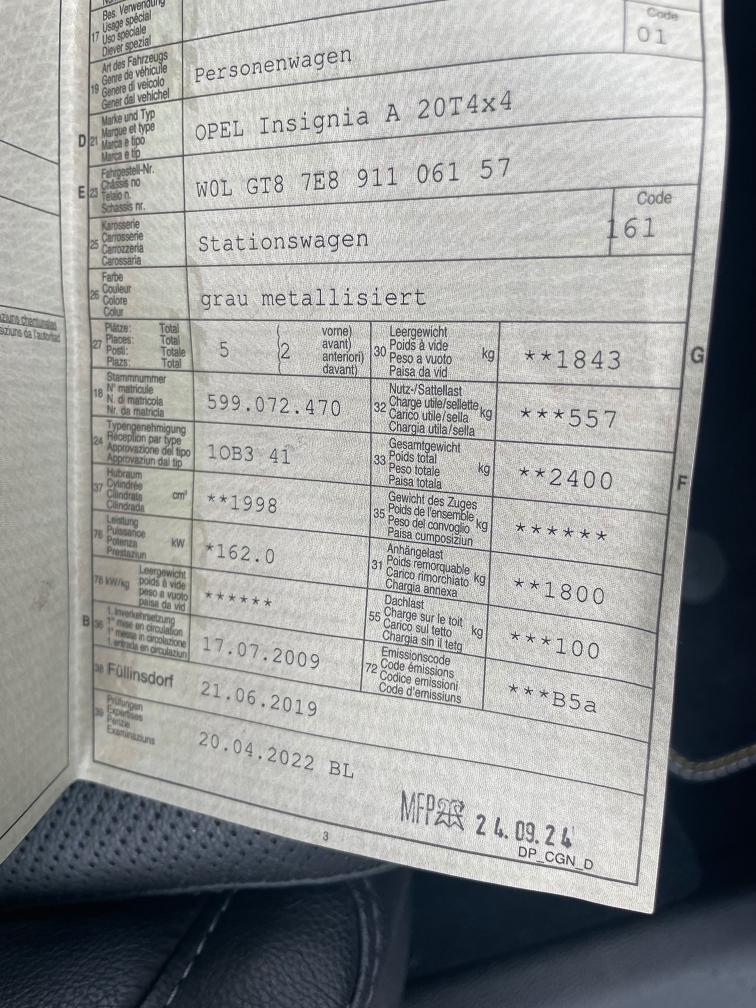 Bes. Verwendung
17 Usage spécial
Uso speciale
Diever spezial
Code
01
Art des Fahrzeugs
19 Genre de véhicule
Genere di veicolo
Gener dal vehichel
Personenwagen
Marke und Typ
D 21 Marque et type
Marca e tipo
Marca e tip
OPEL Insignia A 20T4x4
Fahrgestell-Nr.
E 23 Châssis no
Telaio n.
Schassis nr.
W0L GT8 7E8 911 061 57
Karosserie
25 Carrosserie
Carrozzeria
Carossaria
Stationswagen
Code
161
Farbe
26 Couleur
Colore
Colur
grau metallisiert
Plätze: Total
27 Places: Total
Posti: Totale
Plazs: Total
5 (2
vorne)
avant)
anteriori)
davant)
Leergewicht
30 Poids à vide kg
Peso a vuoto
Paisa da vid
**1843
G
Stammnummer
18 N° matricule
N. di matricola
Nr. da matricla
599.072.470
Nutz-/Sattellast
32 Charge utile/sellette kg
Carico utile/sella
Chargia utila/sella
***557
Typengenehmigung
24 Réception par type
Approvazione del tipo
Approvaziun dal tip
1OB3 41
Gesamtgewicht
33 Poids total
Peso totale kg
Paisa totala
**2400
F
Hubraum
37 Cylindrée
Cilindrata cm³
Cilindrada
**1998
Gewicht des Zuges
35 Poids de l'ensemble
Peso del convoglio kg
Paisa cumposiziun
******
Leistung
76 Puissance
Potenza kW
Prestaziun
*162.0
Anhängelast
31 Poids remorquable
Carico rimorchiato kg
Chargia annexa
**1800
Leergewicht
78 kW/kg poids à vide
peso a vuoto
paisa da vid
******
Dachlast
55 Charge sur le toit
Carico sul tetto kg
Chargia sin il tetg
***100
1. Inverkehrsetzung
B 36 1re mise en circulation
1a messa in circolazione
1. entrada en circulaziun
17.07.2009
Emissionscode
72 Code émissions
Codice emissioni
Code d'emissiuns
***B5a
38 Füllinsdorf
21.06.2019
Prüfungen
39 Expertises
Perizie
Examinaziuns
20.04.2022 BL
MFP 24.09.24
DP_CGN_D
3